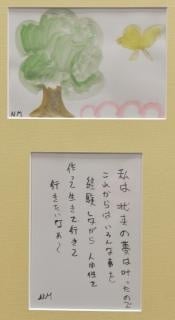 NM
私は 将来の夢は叶ったので
これからは いろんな事を
経験しながら 人間性を
作って生きて行きて
行きたいなぁ〜
NM